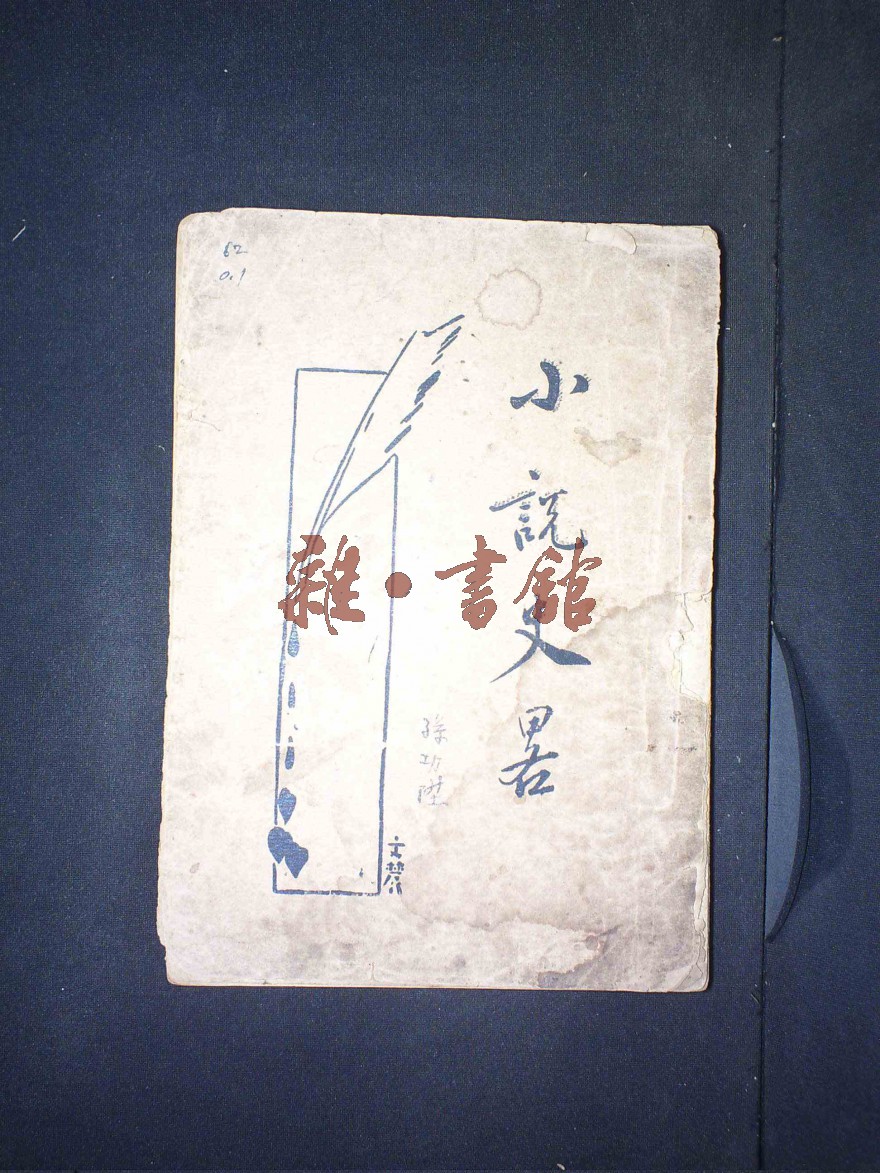 62
0.1
小說史畧
孫功陞
文農
雜·書館